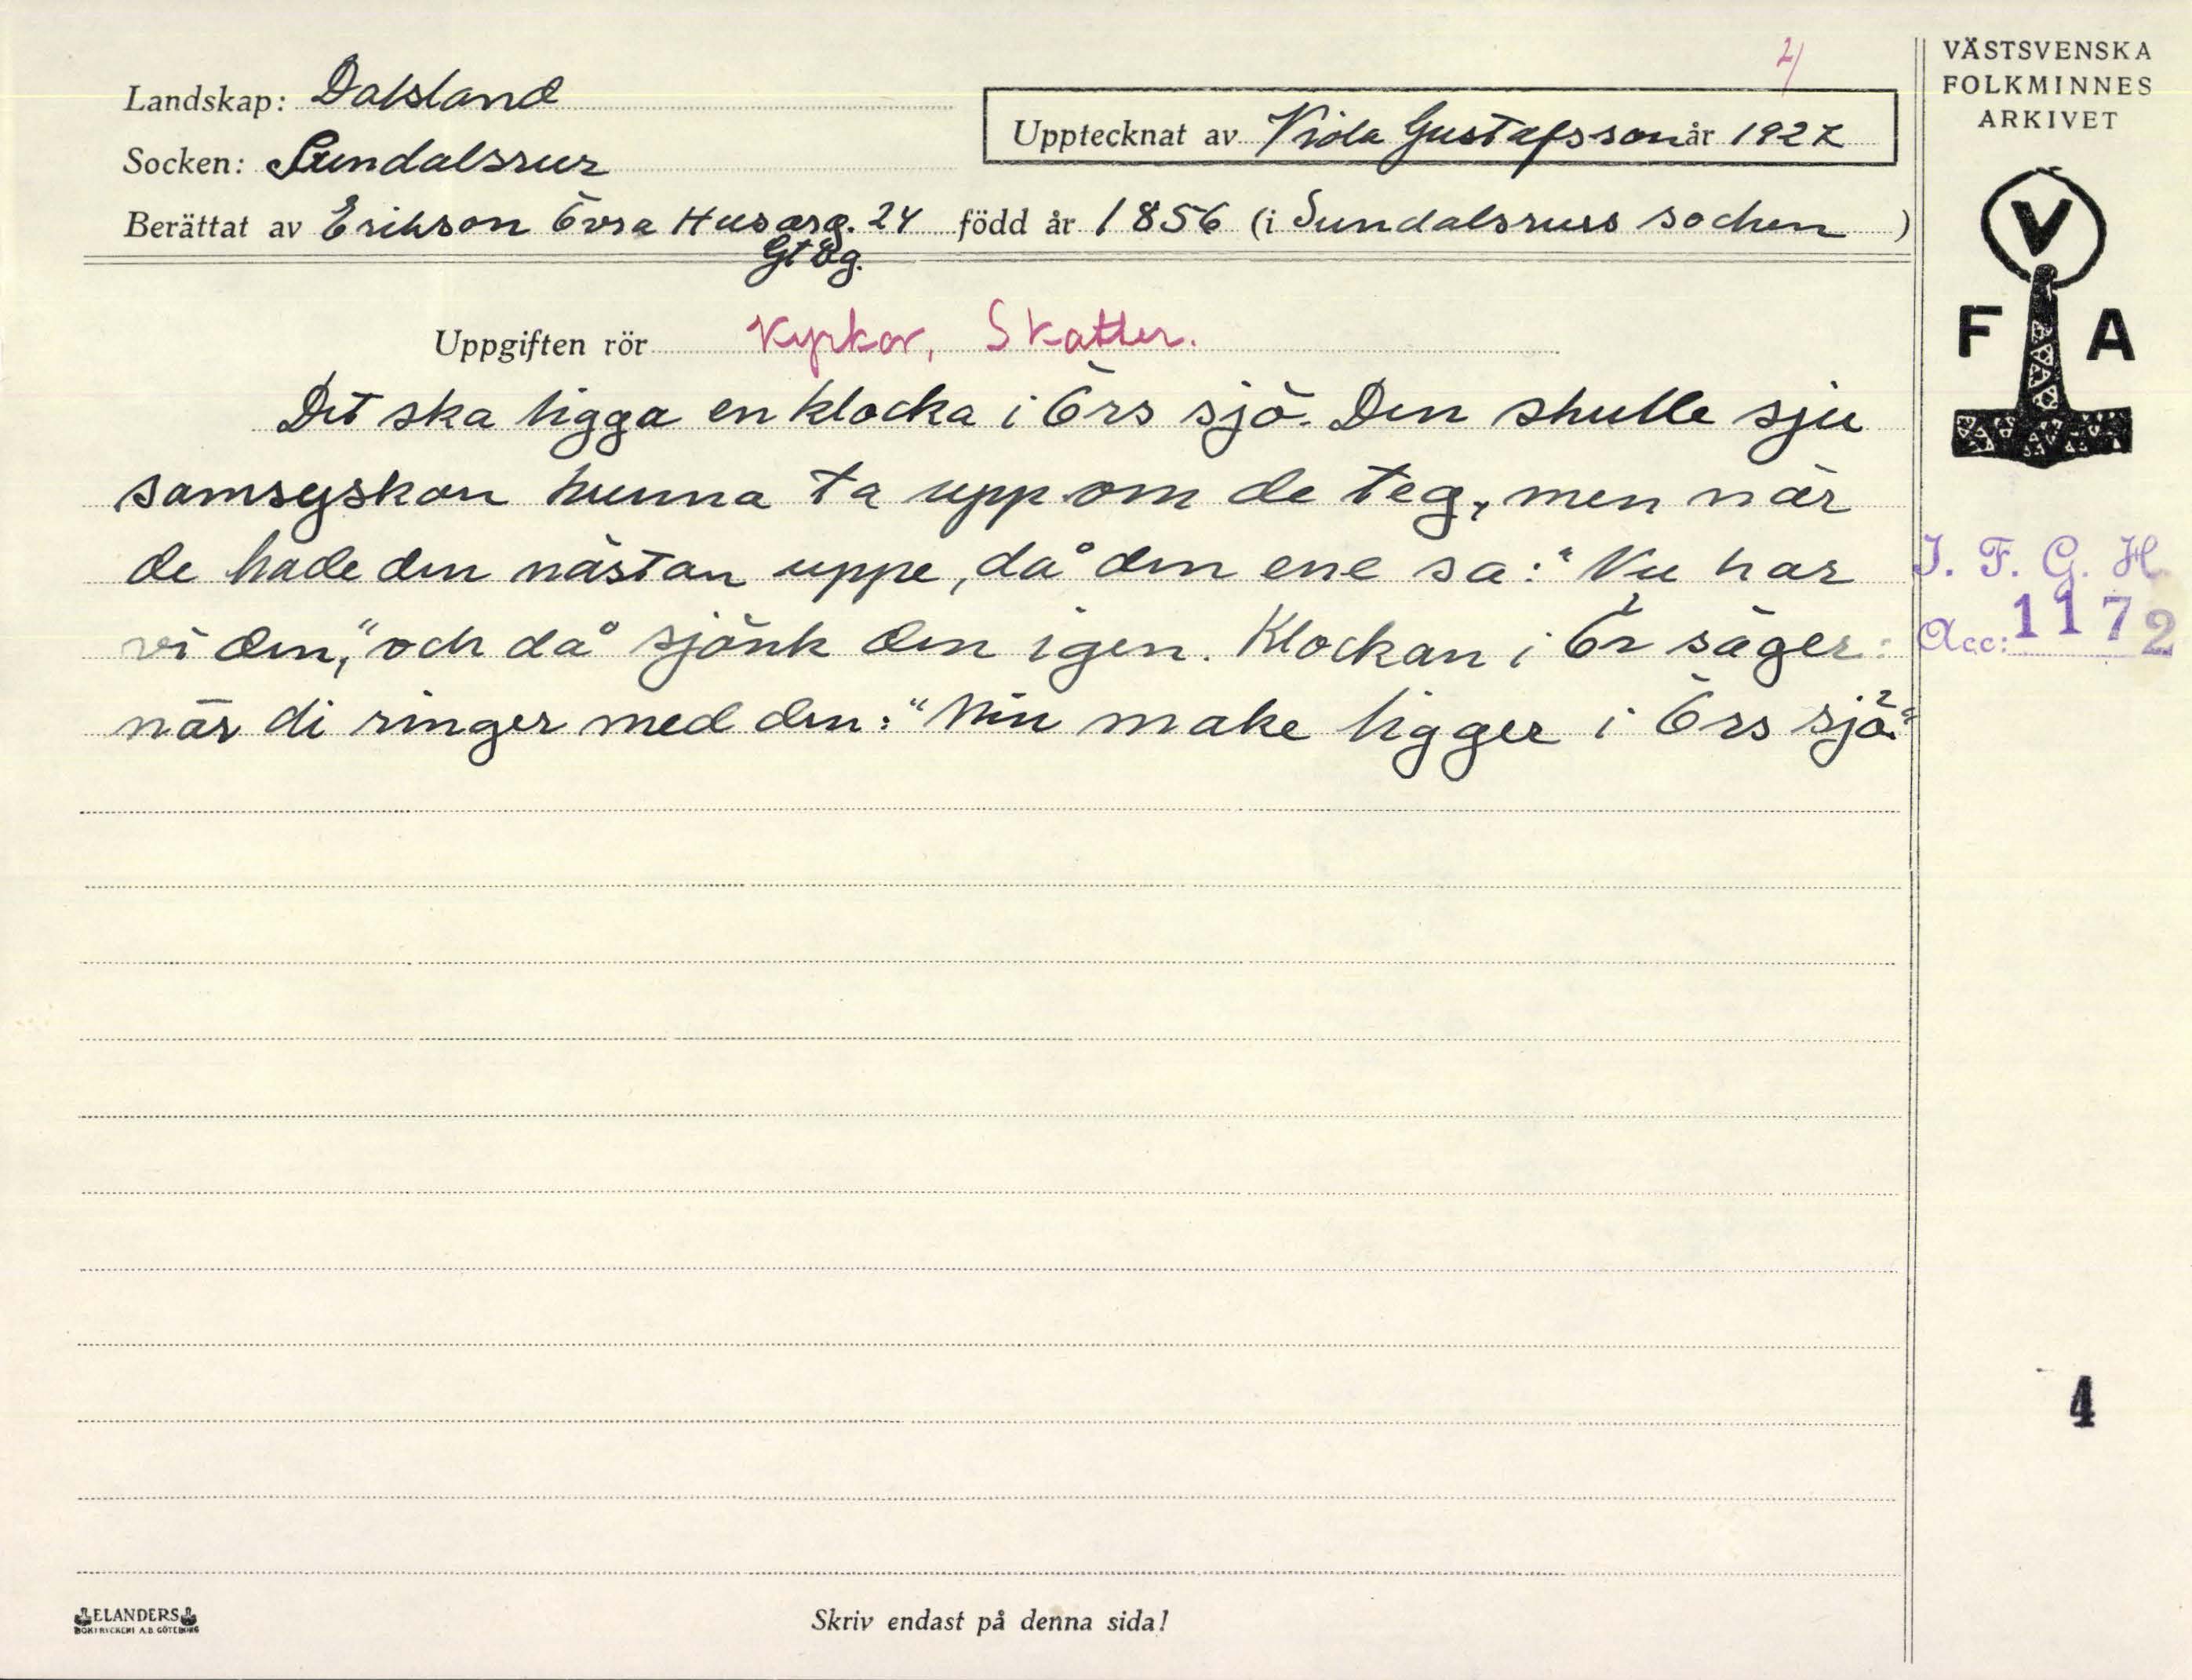 4
VÄSTSVENSKA
FOLKMINNES
ARKIVET
Landskap: Dalsland
Upptecknat av Viola Gustafsson år 1927
Socken: Sundalsrur
Berättat av Erikson Övra Husarg. 24 född år 1856 (i Sundalsrurs socken)
Gtbg.
V
F A
Uppgiften rör Kyrkor, Skatter.
Det ska ligga en klocka i Örs sjö. Den skulle sju
samsyskon kunna ta upp om de teg, men när
de hade den nästan uppe, då den ene sa: "Nu har
vi den," och då sjönk den igen. Klockan i Ör säger:
när di ringer med den: "Min make ligger i Örs sjö."
I. F. G. H.
Acc: 1172
4
ELANDERS
BOKTRYCKERI A.B. GÖTEBORG
Skriv endast på denna sida!